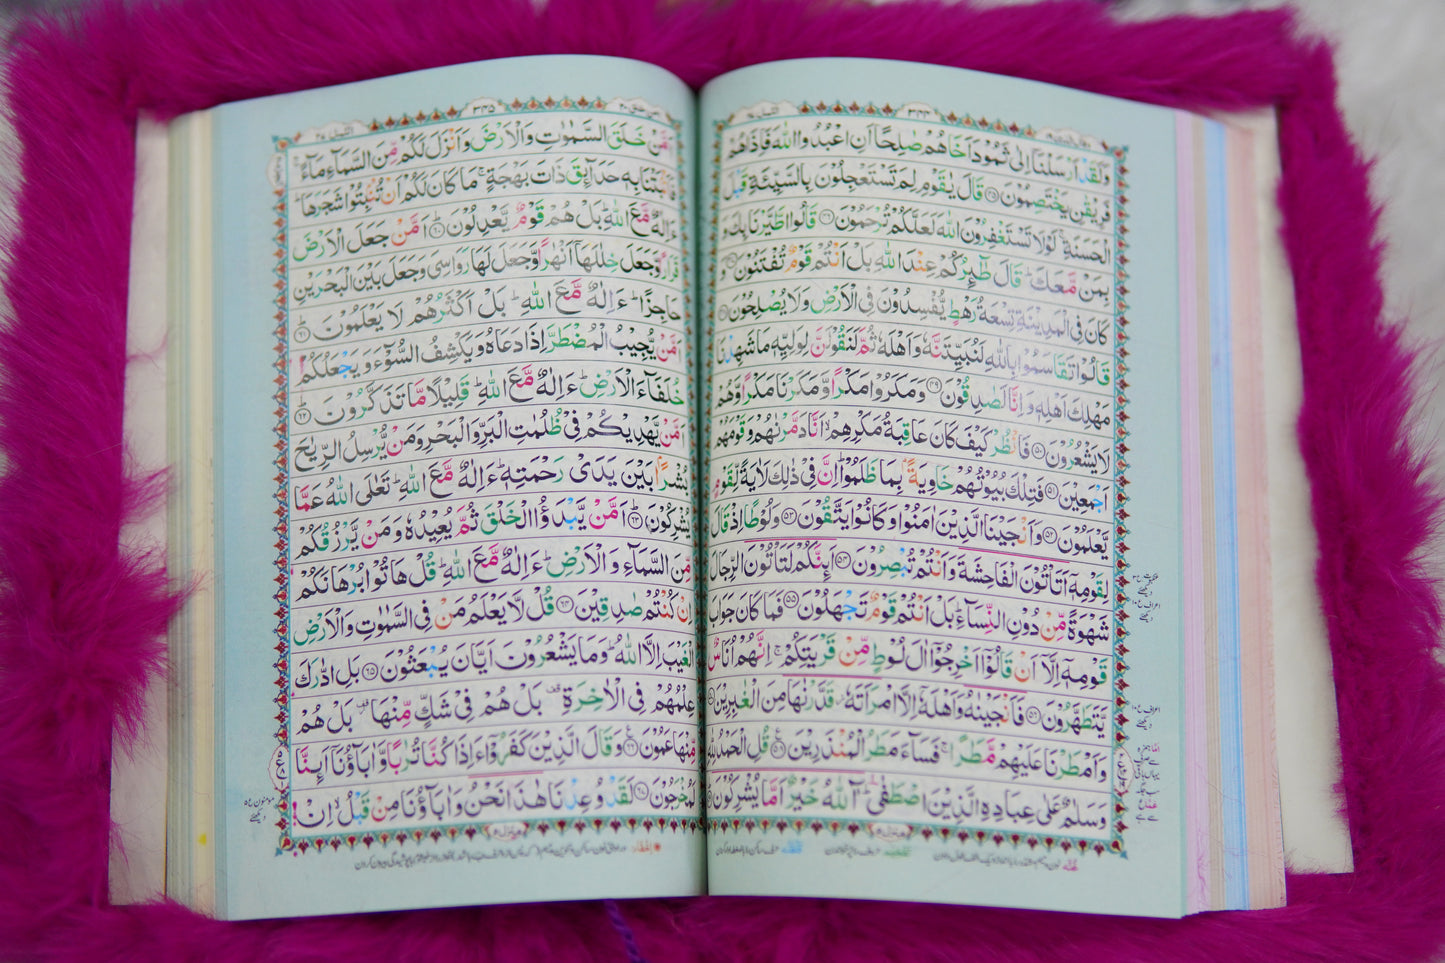 وَلَقَدْ اَرْسَلْنَاۤ اِلٰى ثَمُوْدَ اَخَاهُمْ صٰلِحًا اَنِ اعْبُدُوا اللّٰهَ فَاِذَا هُمْ
فَرِيْقٰنِ يَخْتَصِمُوْنَ ﴿۴۵﴾ قَالَ يٰقَوْمِ لِمَ تَسْتَعْجِلُوْنَ بِالسَّيِّئَةِ قَبْلَ
الْحَسَنَةِ ۚ لَوْلَا تَسْتَغْفِرُوْنَ اللّٰهَ لَعَلَّكُمْ تُرْحَمُوْنَ ﴿۴۶﴾ قَالُوا اطَّيَّرْنَا بِكَ وَ
بِمَنْ مَّعَكَ ؕ قَالَ طٰٓئِرُكُمْ عِنْدَ اللّٰهِ بَلْ اَنْتُمْ قَوْمٌ تُفْتَنُوْنَ ﴿۴۷﴾ وَ
كَانَ فِى الْمَدِيْنَةِ تِسْعَةُ رَهْطٍ يُّفْسِدُوْنَ فِى الْاَرْضِ وَلَا يُصْلِحُوْنَ ﴿۴۸﴾
قَالُوْا تَقَاسَمُوْا بِاللّٰهِ لَنُبَيِّتَنَّهٗ وَاَهْلَهٗ ثُمَّ لَنَقُوْلَنَّ لِوَلِيِّهٖ مَا شَهِدْنَا
مَهْلِكَ اَهْلِهٖ وَاِنَّا لَصٰدِقُوْنَ ﴿۴۹﴾ وَمَكَرُوْا مَكْرًا وَّمَكَرْنَا مَكْرًا وَّهُمْ
لَا يَشْعُرُوْنَ ﴿۵۰﴾ فَانْظُرْ كَيْفَ كَانَ عَاقِبَةُ مَكْرِهِمْ ۙ اَنَّا دَمَّرْنٰهُمْ وَقَوْمَهُمْ
اَجْمَعِيْنَ ﴿۵۱﴾ فَتِلْكَ بُيُوْتُهُمْ خَاوِيَةًۢ بِمَا ظَلَمُوْا ؕ اِنَّ فِىْ ذٰلِكَ لَاٰيَةً لِّقَوْمٍ
يَّعْلَمُوْنَ ﴿۵۲﴾ وَاَنْجَيْنَا الَّذِيْنَ اٰمَنُوْا وَكَانُوْا يَتَّقُوْنَ ﴿۵۳﴾ وَلُوْطًا اِذْ قَالَ
لِقَوْمِهٖۤ اَتَاْتُوْنَ الْفَاحِشَةَ وَاَنْتُمْ تُبْصِرُوْنَ ﴿۵۴﴾ اَئِنَّكُمْ لَتَاْتُوْنَ الرِّجَالَ
شَهْوَةً مِّنْ دُوْنِ النِّسَآءِ ؕ بَلْ اَنْتُمْ قَوْمٌ تَجْهَلُوْنَ ﴿۵۵﴾ فَمَا كَانَ جَوَابَ
قَوْمِهٖۤ اِلَّاۤ اَنْ قَالُوْۤا اَخْرِجُوْۤا اٰلَ لُوْطٍ مِّنْ قَرْيَتِكُمْ ۚ اِنَّهُمْ اُنَاسٌ
يَّتَطَهَّرُوْنَ ﴿۵۶﴾ فَاَنْجَيْنٰهُ وَاَهْلَهٗۤ اِلَّا امْرَاَتَهٗ ؗ قَدَّرْنٰهَا مِنَ الْغٰبِرِيْنَ ﴿۵۷﴾
وَاَمْطَرْنَا عَلَيْهِمْ مَّطَرًا ۚ فَسَآءَ مَطَرُ الْمُنْذَرِيْنَ ﴿۵۸﴾ قُلِ الْحَمْدُ لِلّٰهِ
وَسَلٰمٌ عَلٰى عِبَادِهِ الَّذِيْنَ اصْطَفٰى ؕ آٰللّٰهُ خَيْرٌ اَمَّا يُشْرِكُوْنَ ﴿۵۹﴾
النمل ۲۷
۳۴۵
امن خلق ۲۰
اَمَّنْ خَلَقَ السَّمٰوٰتِ وَالْاَرْضَ وَاَنْزَلَ لَكُمْ مِّنَ السَّمَآءِ مَآءً ۚ
فَاَنْۢبَتْنَا بِهٖ حَدَآئِقَ ذَاتَ بَهْجَةٍ ۚ مَا كَانَ لَكُمْ اَنْ تُنْۢبِتُوْا شَجَرَهَا ؕ
ءَاِلٰهٌ مَّعَ اللّٰهِ ؕ بَلْ هُمْ قَوْمٌ يَّعْدِلُوْنَ ﴿۶۰﴾ اَمَّنْ جَعَلَ الْاَرْضَ
قَرَارًا وَّجَعَلَ خِلٰلَهَاۤ اَنْهٰرًا وَّجَعَلَ لَهَا رَوَاسِىَ وَجَعَلَ بَيْنَ الْبَحْرَيْنِ
حَاجِزًا ؕ ءَاِلٰهٌ مَّعَ اللّٰهِ ؕ بَلْ اَكْثَرُهُمْ لَا يَعْلَمُوْنَ ﴿۶۱﴾
اَمَّنْ يُّجِيْبُ الْمُضْطَرَّ اِذَا دَعَاهُ وَيَكْشِفُ السُّوْٓءَ وَيَجْعَلُكُمْ
خُلَفَآءَ الْاَرْضِ ؕ ءَاِلٰهٌ مَّعَ اللّٰهِ ؕ قَلِيْلًا مَّا تَذَكَّرُوْنَ ﴿۶۲﴾
اَمَّنْ يَّهْدِيْكُمْ فِىْ ظُلُمٰتِ الْبَرِّ وَالْبَحْرِ وَمَنْ يُّرْسِلُ الرِّيٰحَ
بُشْرًۢا بَيْنَ يَدَىْ رَحْمَتِهٖ ؕ ءَاِلٰهٌ مَّعَ اللّٰهِ ؕ تَعٰلَى اللّٰهُ عَمَّا
يُشْرِكُوْنَ ﴿۶۳﴾ اَمَّنْ يَّبْدَؤُا الْخَلْقَ ثُمَّ يُعِيْدُهٗ وَمَنْ يَّرْزُقُكُمْ
مِّنَ السَّمَآءِ وَالْاَرْضِ ؕ ءَاِلٰهٌ مَّعَ اللّٰهِ ؕ قُلْ هَاتُوْا بُرْهَانَكُمْ
اِنْ كُنْتُمْ صٰدِقِيْنَ ﴿۶۴﴾ قُلْ لَّا يَعْلَمُ مَنْ فِى السَّمٰوٰتِ وَالْاَرْضِ
الْغَيْبَ اِلَّا اللّٰهُ ؕ وَمَا يَشْعُرُوْنَ اَيَّانَ يُبْعَثُوْنَ ﴿۶۵﴾ بَلِ ادّٰرَكَ
عِلْمُهُمْ فِى الْاٰخِرَةِ ۫ بَلْ هُمْ فِىْ شَكٍّ مِّنْهَا ۫ بَلْ هُمْ
مِّنْهَا عَمُوْنَ ﴿۶۶﴾ وَقَالَ الَّذِيْنَ كَفَرُوْۤا ءَاِذَا كُنَّا تُرٰبًا وَّاٰبَآؤُنَاۤ اَئِنَّا
لَمُخْرَجُوْنَ ﴿۶۷﴾ لَقَدْ وُعِدْنَا هٰذَا نَحْنُ وَاٰبَآؤُنَا مِنْ قَبْلُ ۙ اِنْ